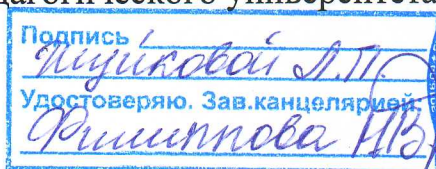 дагогического университета
Подпись
Шуйковой Л.П.
Удостоверяю. Зав.канцелярией:
Филиппова НВ.